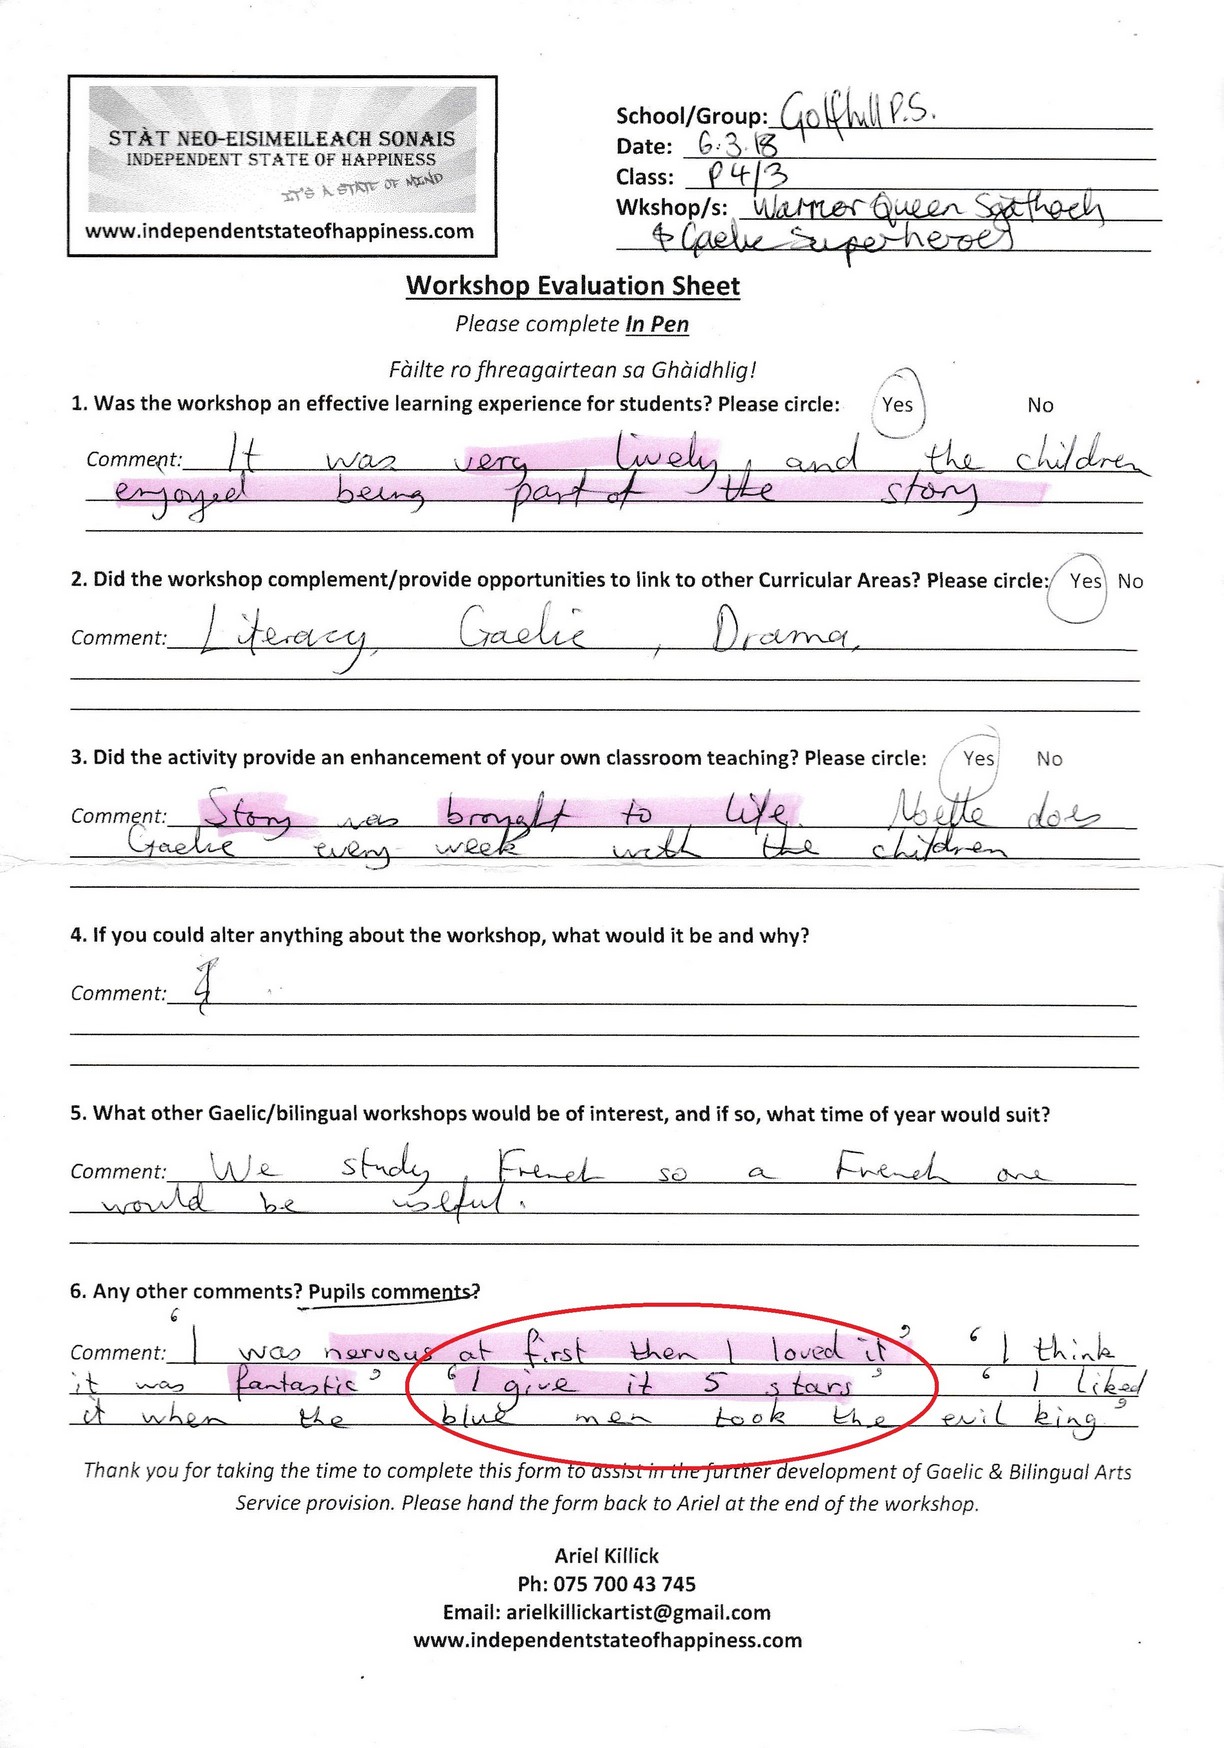 STÀT NEO-EISIMEILEACH SONAIS
INDEPENDENT STATE OF HAPPINESS
IT'S A STATE OF MIND
www.independentstateofhappiness.com
School/Group: Golfhill P.S.
Date: 6.3.18
Class: P4/3
Wkshop/s: Warrior Queen Sgàthach
& Gaelic Superheroes
Workshop Evaluation Sheet
Please complete In Pen
Fàilte ro fhreagairtean sa Ghàidhlig!
1. Was the workshop an effective learning experience for students? Please circle: Yes No
Comment: It was very lively, and the children
enjoyed being part of the story
2. Did the workshop complement/provide opportunities to link to other Curricular Areas? Please circle: Yes No
Comment: Literacy, Gaelic, Drama.
3. Did the activity provide an enhancement of your own classroom teaching? Please circle: Yes No
Comment: Story was brought to life. does
Gaelic every week with the children
4. If you could alter anything about the workshop, what would it be and why?
Comment:
5. What other Gaelic/bilingual workshops would be of interest, and if so, what time of year would suit?
Comment: We study French so a French one
would be useful.
6. Any other comments? Pupils comments?
Comment: 'I was nervous at first then I loved it' 'I think
it was fantastic' 'I give it 5 stars' 'I liked
it when the blue men took the evil king'
Thank you for taking the time to complete this form to assist in the further development of Gaelic & Bilingual Arts
Service provision. Please hand the form back to Ariel at the end of the workshop.
Ariel Killick
Ph: 075 700 43 745
Email: arielkillickartist@gmail.com
www.independentstateofhappiness.com